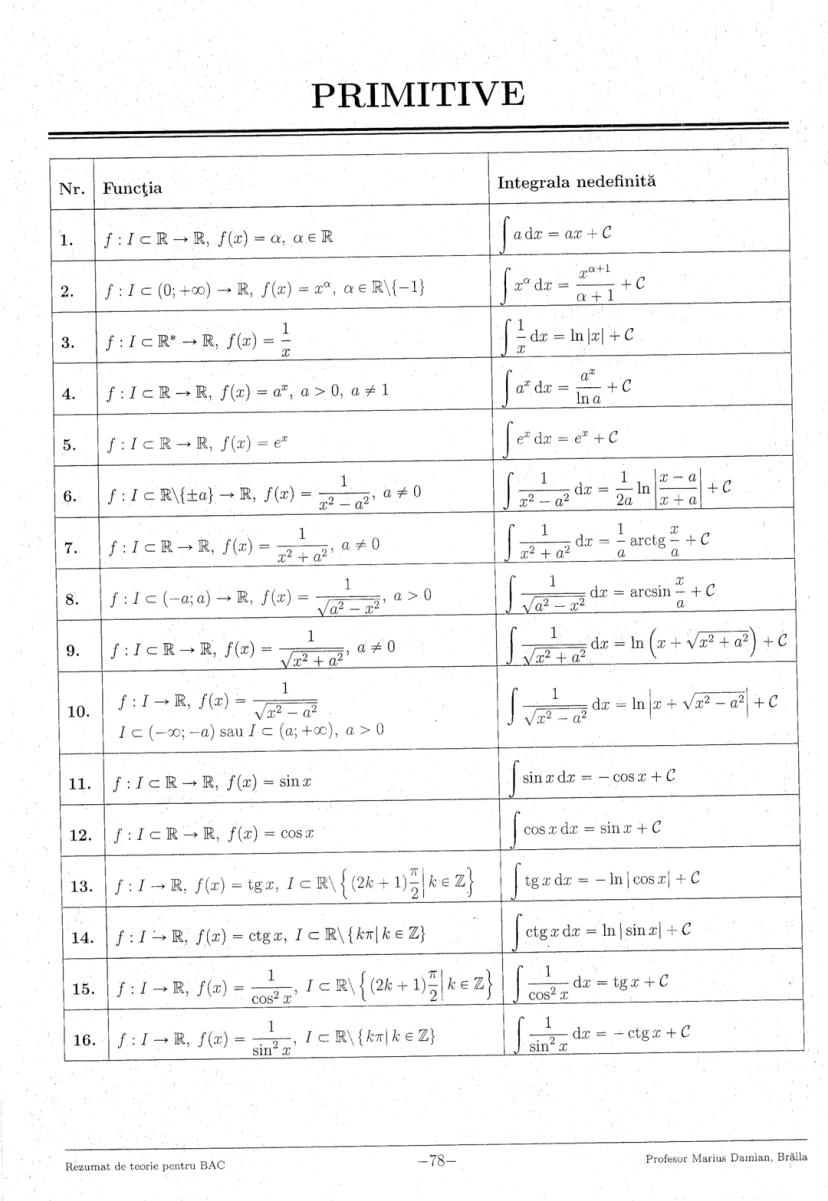 PRIMITIVE
Nr. Funcţia Integrala nedefinită
1. f : I ⊂ ℝ → ℝ, f(x) = α, α ∈ ℝ ∫ a dx = ax + C
2. f : I ⊂ (0; +∞) → ℝ, f(x) = x^α, α ∈ ℝ\{−1} ∫ x^α dx = x^(α+1)/(α + 1) + C
3. f : I ⊂ ℝ* → ℝ, f(x) = 1/x ∫ 1/x dx = ln |x| + C
4. f : I ⊂ ℝ → ℝ, f(x) = a^x, a > 0, a ≠ 1 ∫ a^x dx = a^x/ln a + C
5. f : I ⊂ ℝ → ℝ, f(x) = e^x ∫ e^x dx = e^x + C
6. f : I ⊂ ℝ\{±a} → ℝ, f(x) = 1/(x² − a²), a ≠ 0 ∫ 1/(x² − a²) dx = 1/(2a) ln |(x − a)/(x + a)| + C
7. f : I ⊂ ℝ → ℝ, f(x) = 1/(x² + a²), a ≠ 0 ∫ 1/(x² + a²) dx = 1/a arctg x/a + C
8. f : I ⊂ (−a; a) → ℝ, f(x) = 1/√(a² − x²), a > 0 ∫ 1/√(a² − x²) dx = arcsin x/a + C
9. f : I ⊂ ℝ → ℝ, f(x) = 1/√(x² + a²), a ≠ 0 ∫ 1/√(x² + a²) dx = ln (x + √(x² + a²)) + C
10. f : I → ℝ, f(x) = 1/√(x² − a²) ∫ 1/√(x² − a²) dx = ln |x + √(x² − a²)| + C
I ⊂ (−∞; −a) sau I ⊂ (a; +∞), a > 0
11. f : I ⊂ ℝ → ℝ, f(x) = sin x ∫ sin x dx = − cos x + C
12. f : I ⊂ ℝ → ℝ, f(x) = cos x ∫ cos x dx = sin x + C
13. f : I → ℝ, f(x) = tg x, I ⊂ ℝ\{(2k + 1)π/2 | k ∈ ℤ} ∫ tg x dx = − ln | cos x| + C
14. f : I → ℝ, f(x) = ctg x, I ⊂ ℝ\{kπ| k ∈ ℤ} ∫ ctg x dx = ln | sin x| + C
15. f : I → ℝ, f(x) = 1/cos² x, I ⊂ ℝ\{(2k + 1)π/2 | k ∈ ℤ} ∫ 1/cos² x dx = tg x + C
16. f : I → ℝ, f(x) = 1/sin² x, I ⊂ ℝ\{kπ| k ∈ ℤ} ∫ 1/sin² x dx = − ctg x + C
Rezumat de teorie pentru BAC −78− Profesor Marius Damian, Brăila